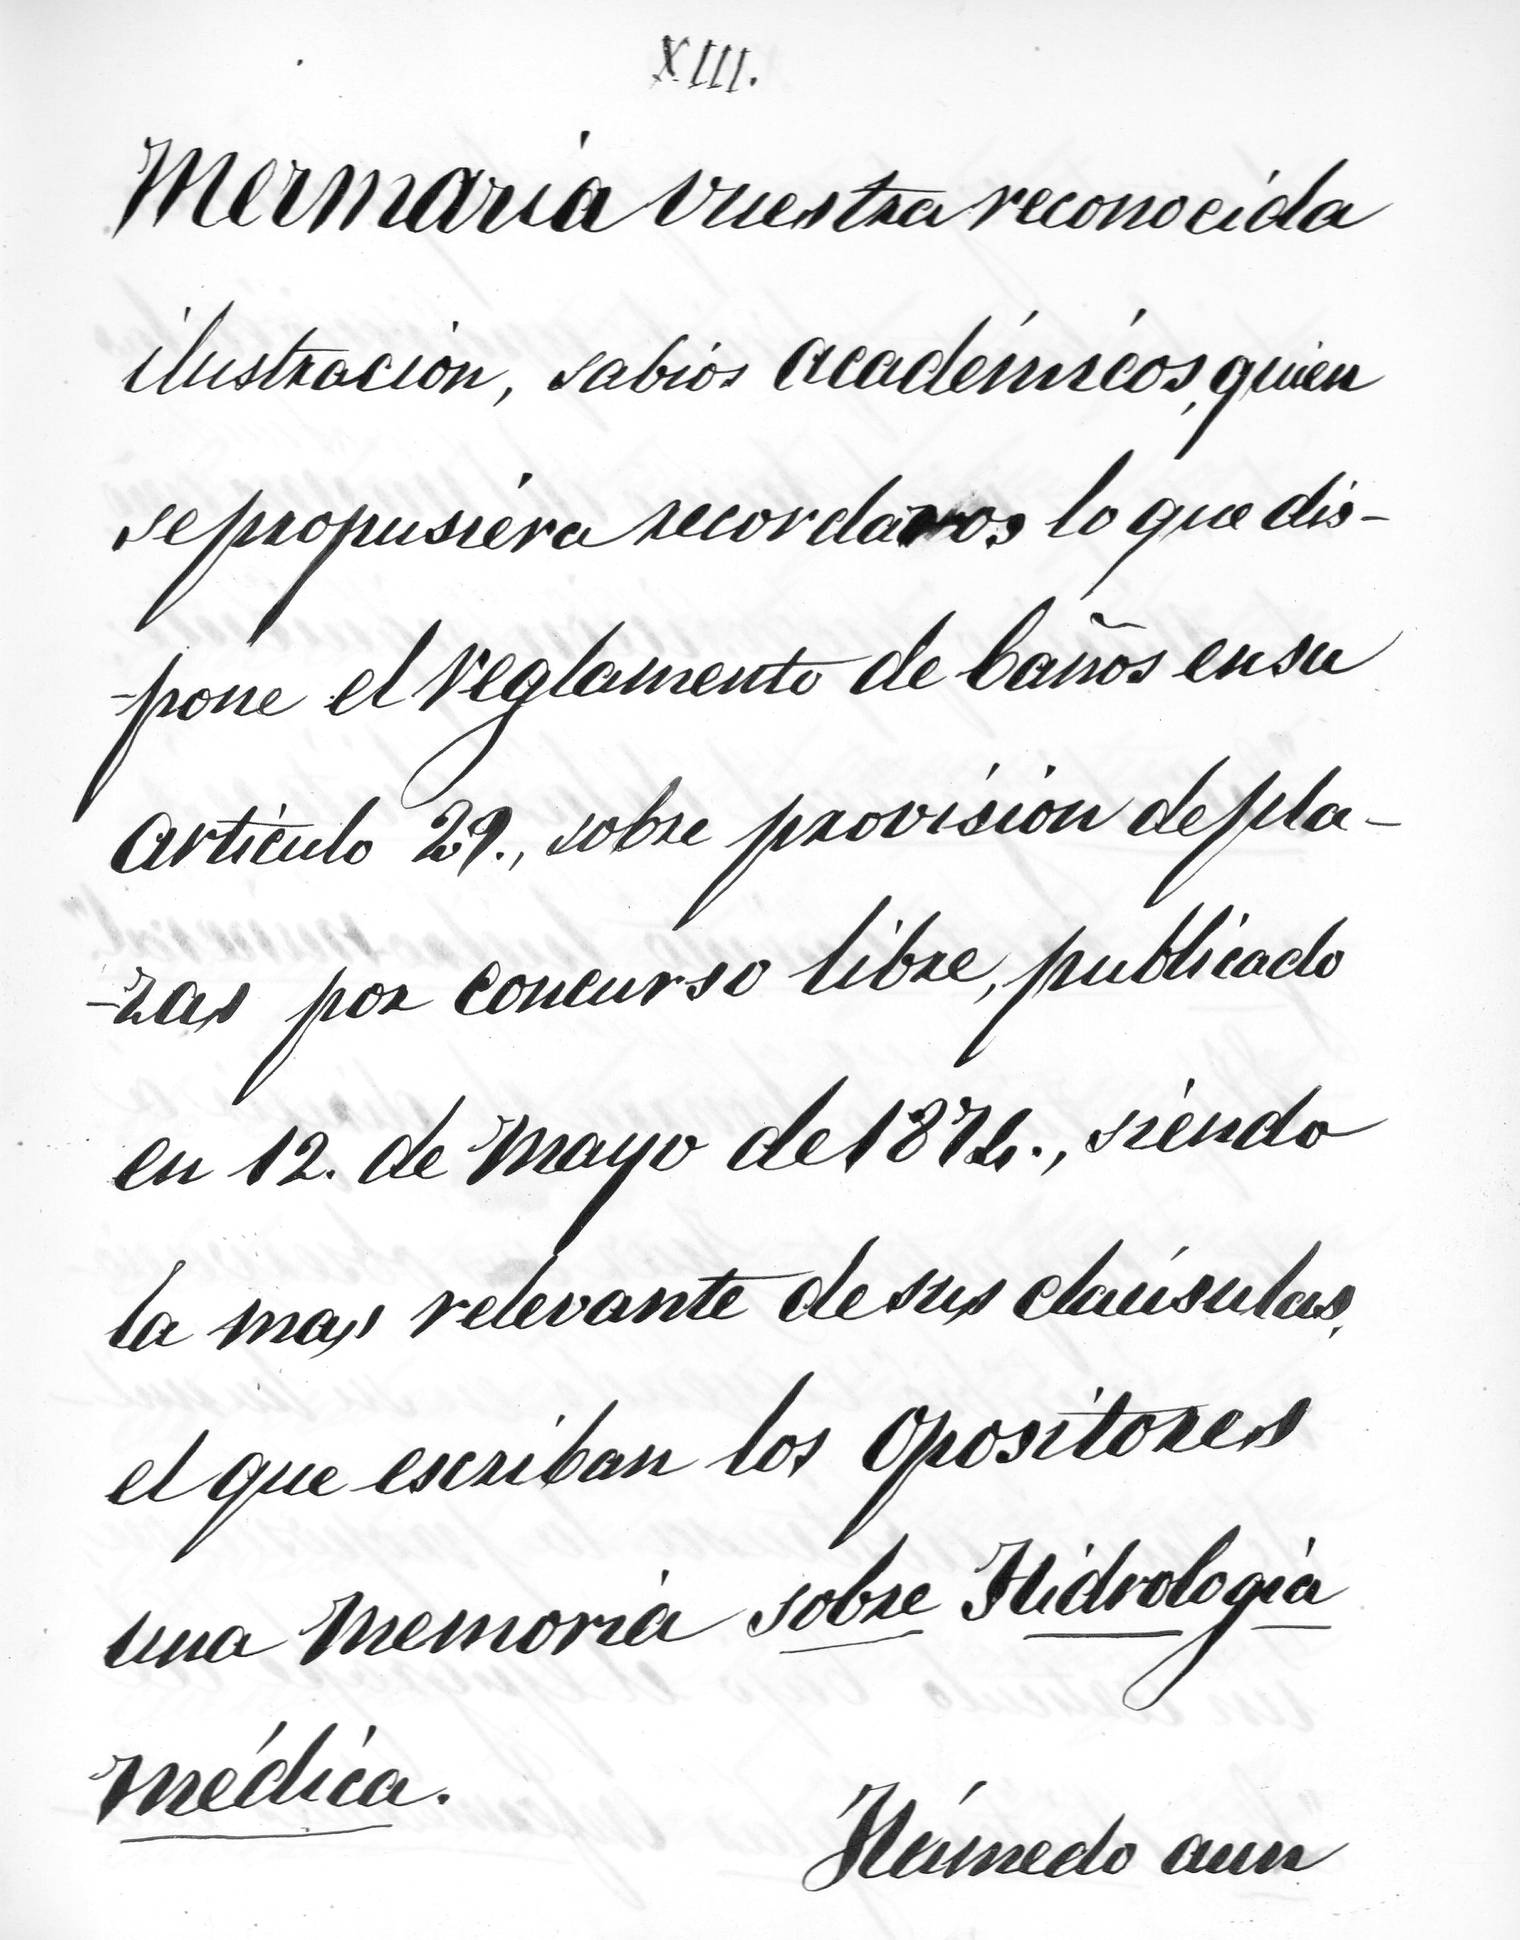 XIII.
Mermaria vuestra reconocida
ilustracion, sabios académicos, quien
se propusiera recordaros lo que dis-
-pone el reglamento de baños en su
artículo 29., sobre provision de pla-
-zas por concurso libre, publicado
en 12. de Mayo de 1874., siendo
la mas relevante de sus claúsulas,
el que escriban los opositores
una Memoria sobre Hidrologia
médica.
Húmedo aun